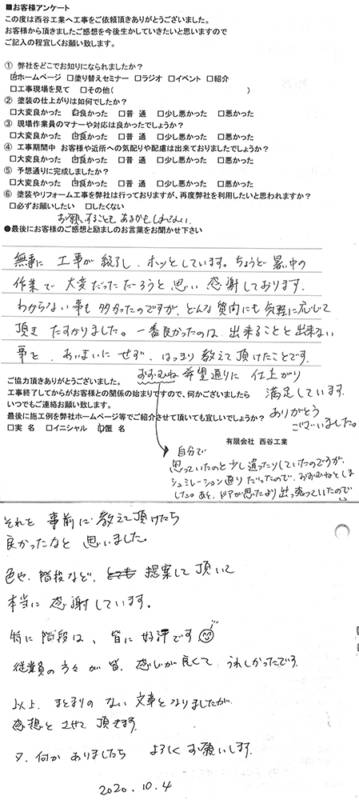 ■お客様アンケート
この度は西谷工業へ工事をご依頼頂きありがとうございました。
お客様から頂きましたご感想を今後生かしていきたいと思いますので
ご記入の程宜しくお願い致します。
① 弊社をどこでお知りになられましたか?
☑ホームページ □塗り替えセミナー □ラジオ □イベント □紹介
□工事現場を見て □その他( )
② 塗装の仕上がりは如何でしたか?
□大変良かった ☑良かった □普 通 □少し悪かった □悪かった
③ 現場作業員のマナーや対応は良かったでしょうか?
□大変良かった ☑良かった □普 通 □少し悪かった □悪かった
④ 工事期間中 お客様や近所への気配りや配慮は出来ておりましたでしょうか?
□大変良かった ☑良かった □普 通 □少し悪かった □悪かった
⑤ 予想通りに完成しましたか?
□大変良かった ☑良かった □普 通 □少し悪かった □悪かった
⑥ 塗装やリフォーム工事を弊社は行っておりますが、再度弊社を利用したいと思われますか?
□必ずお願いしたい □したくない
お願いすることもあるかもしれません。
●最後にお客様のご感想と励ましのお言葉をお聞かせ下さい
無事に工事が終了し、ホッとしています。ちょうど暑い中の
作業で大変だっただろうと思い感謝しております。
わからない事も多かったのですが、どんな質問にも気軽に応じて
頂きたすかりました。一番良かったのは、出来ることと出来ない
事を、あいまいにせず、はっきり教えて頂けたことです。
おおむね希望通りに仕上がり
満足しています。
ありがとう
ございました。
ご協力頂きありがとうございました。
工事終了してからがお客様との関係の始まりですので、何かございましたら
いつでもご連絡お願い致します。
最後に施工例を弊社ホームページ等でご紹介させて頂いても宜しいでしょうか?
□実 名 □イニシャル ☑匿 名
有限会社 西谷工業
自分で
思っていたのと少し違ったりしていたのですが、
シュミレーション通りだったので、おおむねとしま
した。あと、ドアが思ったより出っ張っていたので
それを事前に教えて頂けたら
良かったなと思いました。
色や、階段など、提案して頂いて
本当に感謝しています。
特に階段は、皆に好評です
従業員の方々が皆、感じが良くてうれしかったです。
以上、まとまりのない文章となりましたが
感想とさせて頂きます。
又、何かありましたらよろしくお願いします。
2020.10.4